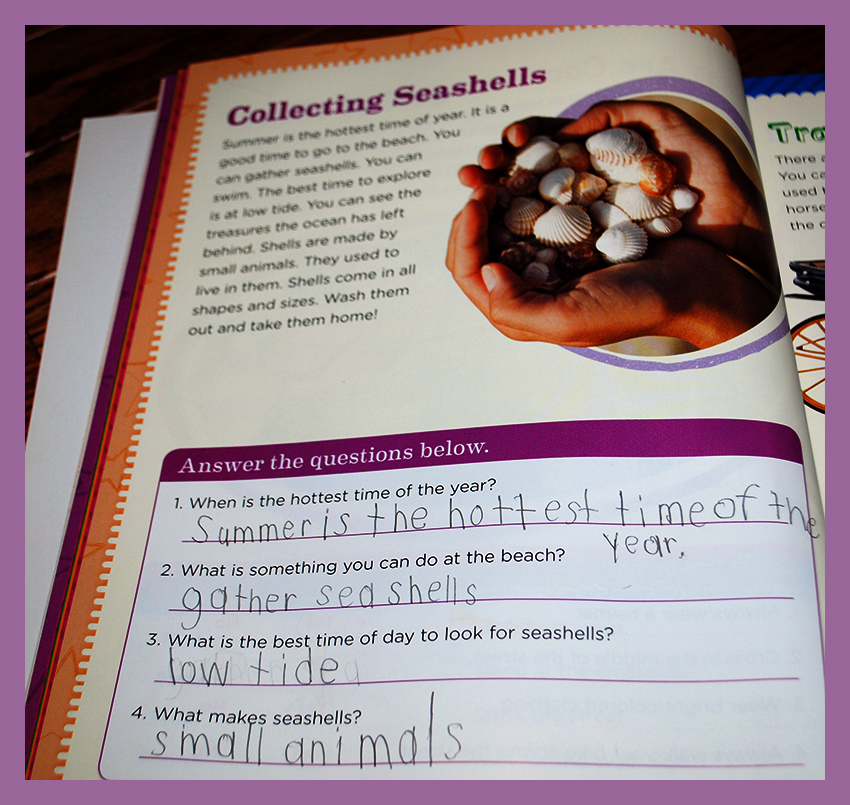 Collecting Seashells
Summer is the hottest time of year. It is a
good time to go to the beach. You
can gather seashells. You can
swim. The best time to explore
is at low tide. You can see the
treasures the ocean has left
behind. Shells are made by
small animals. They used to
live in them. Shells come in all
shapes and sizes. Wash them
out and take them home!
Answer the questions below.
1. When is the hottest time of the year?
Summer is the hottest time of the
year.
2. What is something you can do at the beach?
gather seashells
3. What is the best time of day to look for seashells?
low tide
4. What makes seashells?
small animals
There
You
used
horse
the